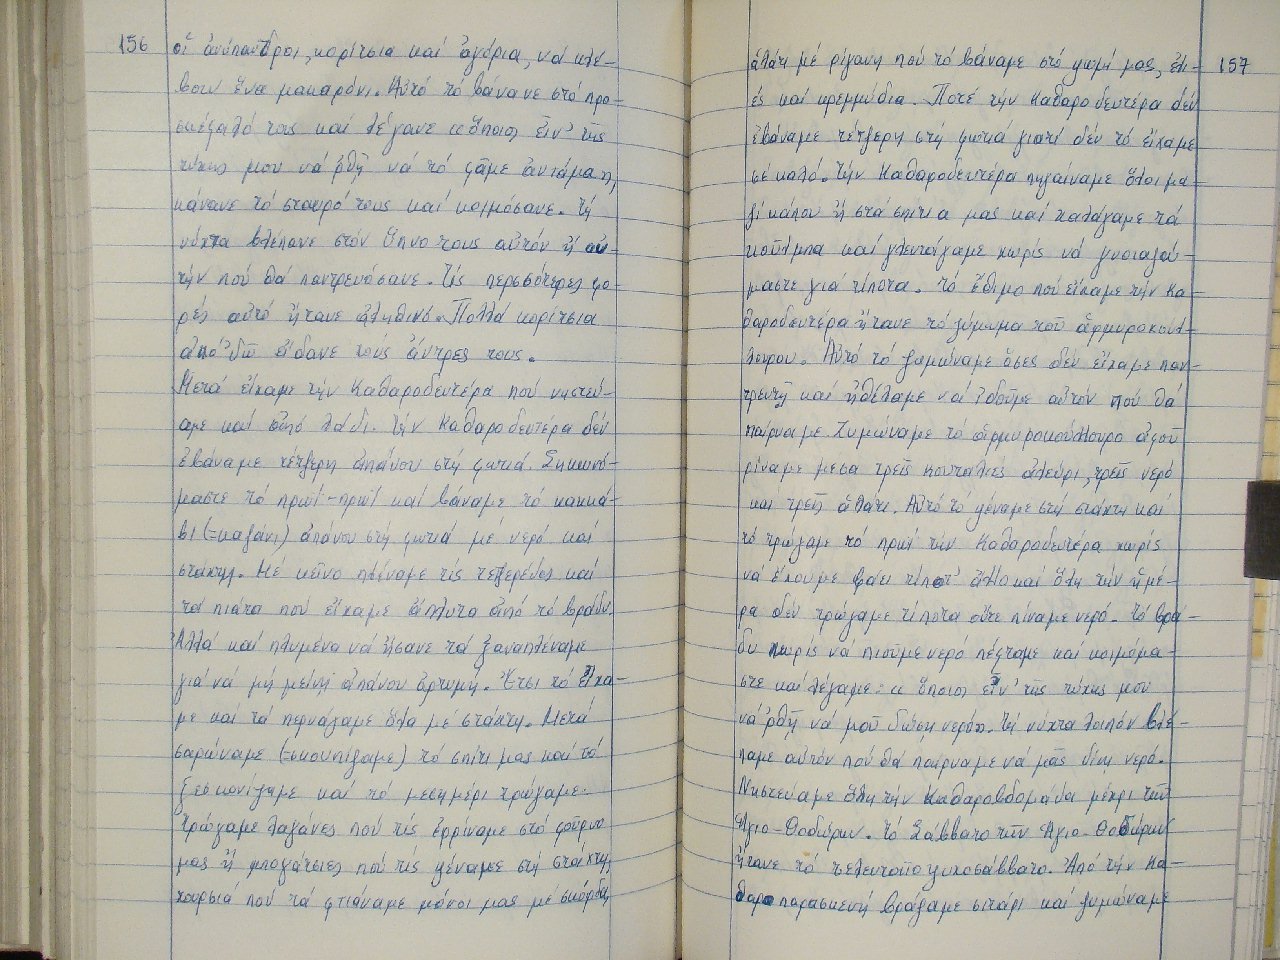 156
οἱ ἀνύπαντροι, κορίτσια καί ἀγόρια, νά κλέ-
βουν ἕνα μακαρόνι. Αὐτό τό βάνανε στό προ-
σκέφαλό τους καί λέγανε «ὅποιος εἶν' τῆς
τύχης μου νά ρθῆ νά τό φᾶμε ἀντάμα»,
κάνανε τό σταυρό τους καί κοιμόσανε. Τή
νύχτα βλέπανε στόν ὕπνο τους αὐτόν ἤ αὐ-
τήν πού θά παντρευόσανε. Τίς περσσότερες φο-
ρές αὐτό ἤτανε ἀληθινό. Πολλά κορίτσια
ἀπό 'δῶ εἴδανε τούς ἄντρες τους.
Μετά εἴχαμε τήν Καθαροδευτέρα πού νηστεύ-
αμε καί ἀπό λάδι. Τήν Καθαροδευτέρα δέν
ἐβάναμε τέτζερη ἀπάνου στή φωτιά. Σηκωνό-
μαστε τό πρωί-πρωί καί βάναμε τό κακκά-
βι (=καζάνι) ἀπάνου στή φωτιά μέ νερό καί
στάχτη. Μέ κεῖνο πλέναμε τίς τετζερέδες καί
τά πιάτα πού εἴχαμε ἄπλυτα ἀπό τό βράδυ.
Ἀλλά καί πλυμένα νά ἤσανε τά ξαναπλέναμε
γιά νά μή μείνη ἀπάνου ἀρτυμή. Ἔτσι τό εἴχα-
με καί τά περνάγαμε ὅλα μέ στάχτη. Μετά
σαρώναμε (=σκουπίζαμε) τό σπίτι μας καί τό
ξεσκονίζαμε καί τό μεσημέρι τρώγαμε.
Τρώγαμε λαγάνες πού τίς ἐρρίναμε στό φοῦρνο
μας ἤ μπογάτσιες πού τίς χέναμε στή στάχτη,
τουρσιά πού τά φτιάναμε μόνοι μας μέ σκόρδα,
157
ἁλάτι μέ ρίγανη πού τό βάναμε στό ψωμί μας, ἐλι-
ές καί κρεμμύδια. Ποτέ τήν Καθαροδευτέρα δέν
ἐβάναμε τέτζερη στή φωτιά γιατί δέν τό εἴχαμε
σέ καλό. Τήν Καθαροδευτέρα πηγαίναμε ὅλοι μα-
ζί κάπου ἤ στά σπίτια μας καί χαλάγαμε τά
κούλμπα καί γλεντάγαμε χωρίς νά γνοιαζού-
μαστε γιά τίποτα. Τό ἔθιμο πού εἴχαμε τήν Κα-
θαροδευτέρα ἤτανε τό ζύμωμα τοῦ ἁρμυροκούλ-
λουρου. Αὐτό τό ζυμώναμε ὅσες δέν εἴχαμε παν-
τρευτῆ καί ἠθέλαμε νά ἰδοῦμε αὐτόν πού θά
παίρναμε. Ζυμώναμε τό ἁρμυροκούλλουρο ἀφοῦ
ρίναμε μέσα τρεῖς κουταλιές ἀλεύρι, τρεῖς νερό
καί τρεῖς ἁλάτι. Αὐτό τό χέναμε στή στάχτη καί
τό τρώγαμε τό πρωί τήν Καθαροδευτέρα χωρίς
νά ἔχουμε φάει τίποτ' ἄλλο καί ὅλη τήν ἡμέ-
ρα δέν τρώγαμε τίποτα οὔτε πίναμε νερό. Τό βρά-
δυ χωρίς νά πιοῦμε νερό πέφταμε καί κοιμόμα-
στε καί λέγαμε: «ὅποιος εἶν' τῆς τύχης μου
νά 'ρθῆ νά μοῦ δώση νερό». Τή νύχτα λοιπόν βλέ-
παμε αὐτόν πού θά παίρναμε νά μᾶς δίνη νερό.
Νηστεύαμε ὅλη τήν Καθαροβδομάδα μέχρι τῶν
Ἁγιο-Θοδώρων. Τό Σάββατο τῶν Ἁγιο-Θοδώρων
ἤτανε τό τελευταῖο ψυχοσάββατο. Ἀπό τήν Κα-
θαροπαρασκευή βράζαμε σιτάρι καί ζυμώναμε